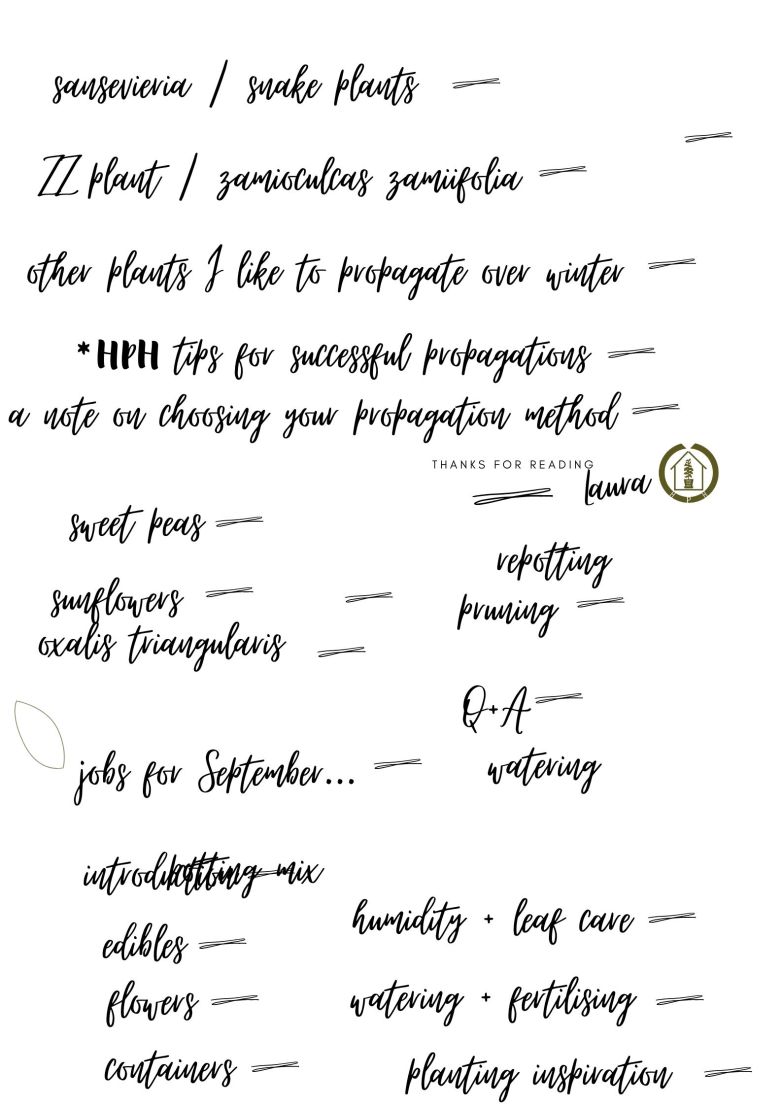 sansevieria / snake plants
ZZ plant / zamioculcas zamiifolia
other plants I like to propagate over winter
*HPH tips for successful propagations
a note on choosing your propagation method
THANKS FOR READING
Laura
HPH
sweet peas
repotting
sunflowers
pruning
oxalis triangularis
Q+A
jobs for September...
watering
introduction
potting mix
humidity + leaf care
edibles
flowers
watering + fertilising
containers
planting inspiration